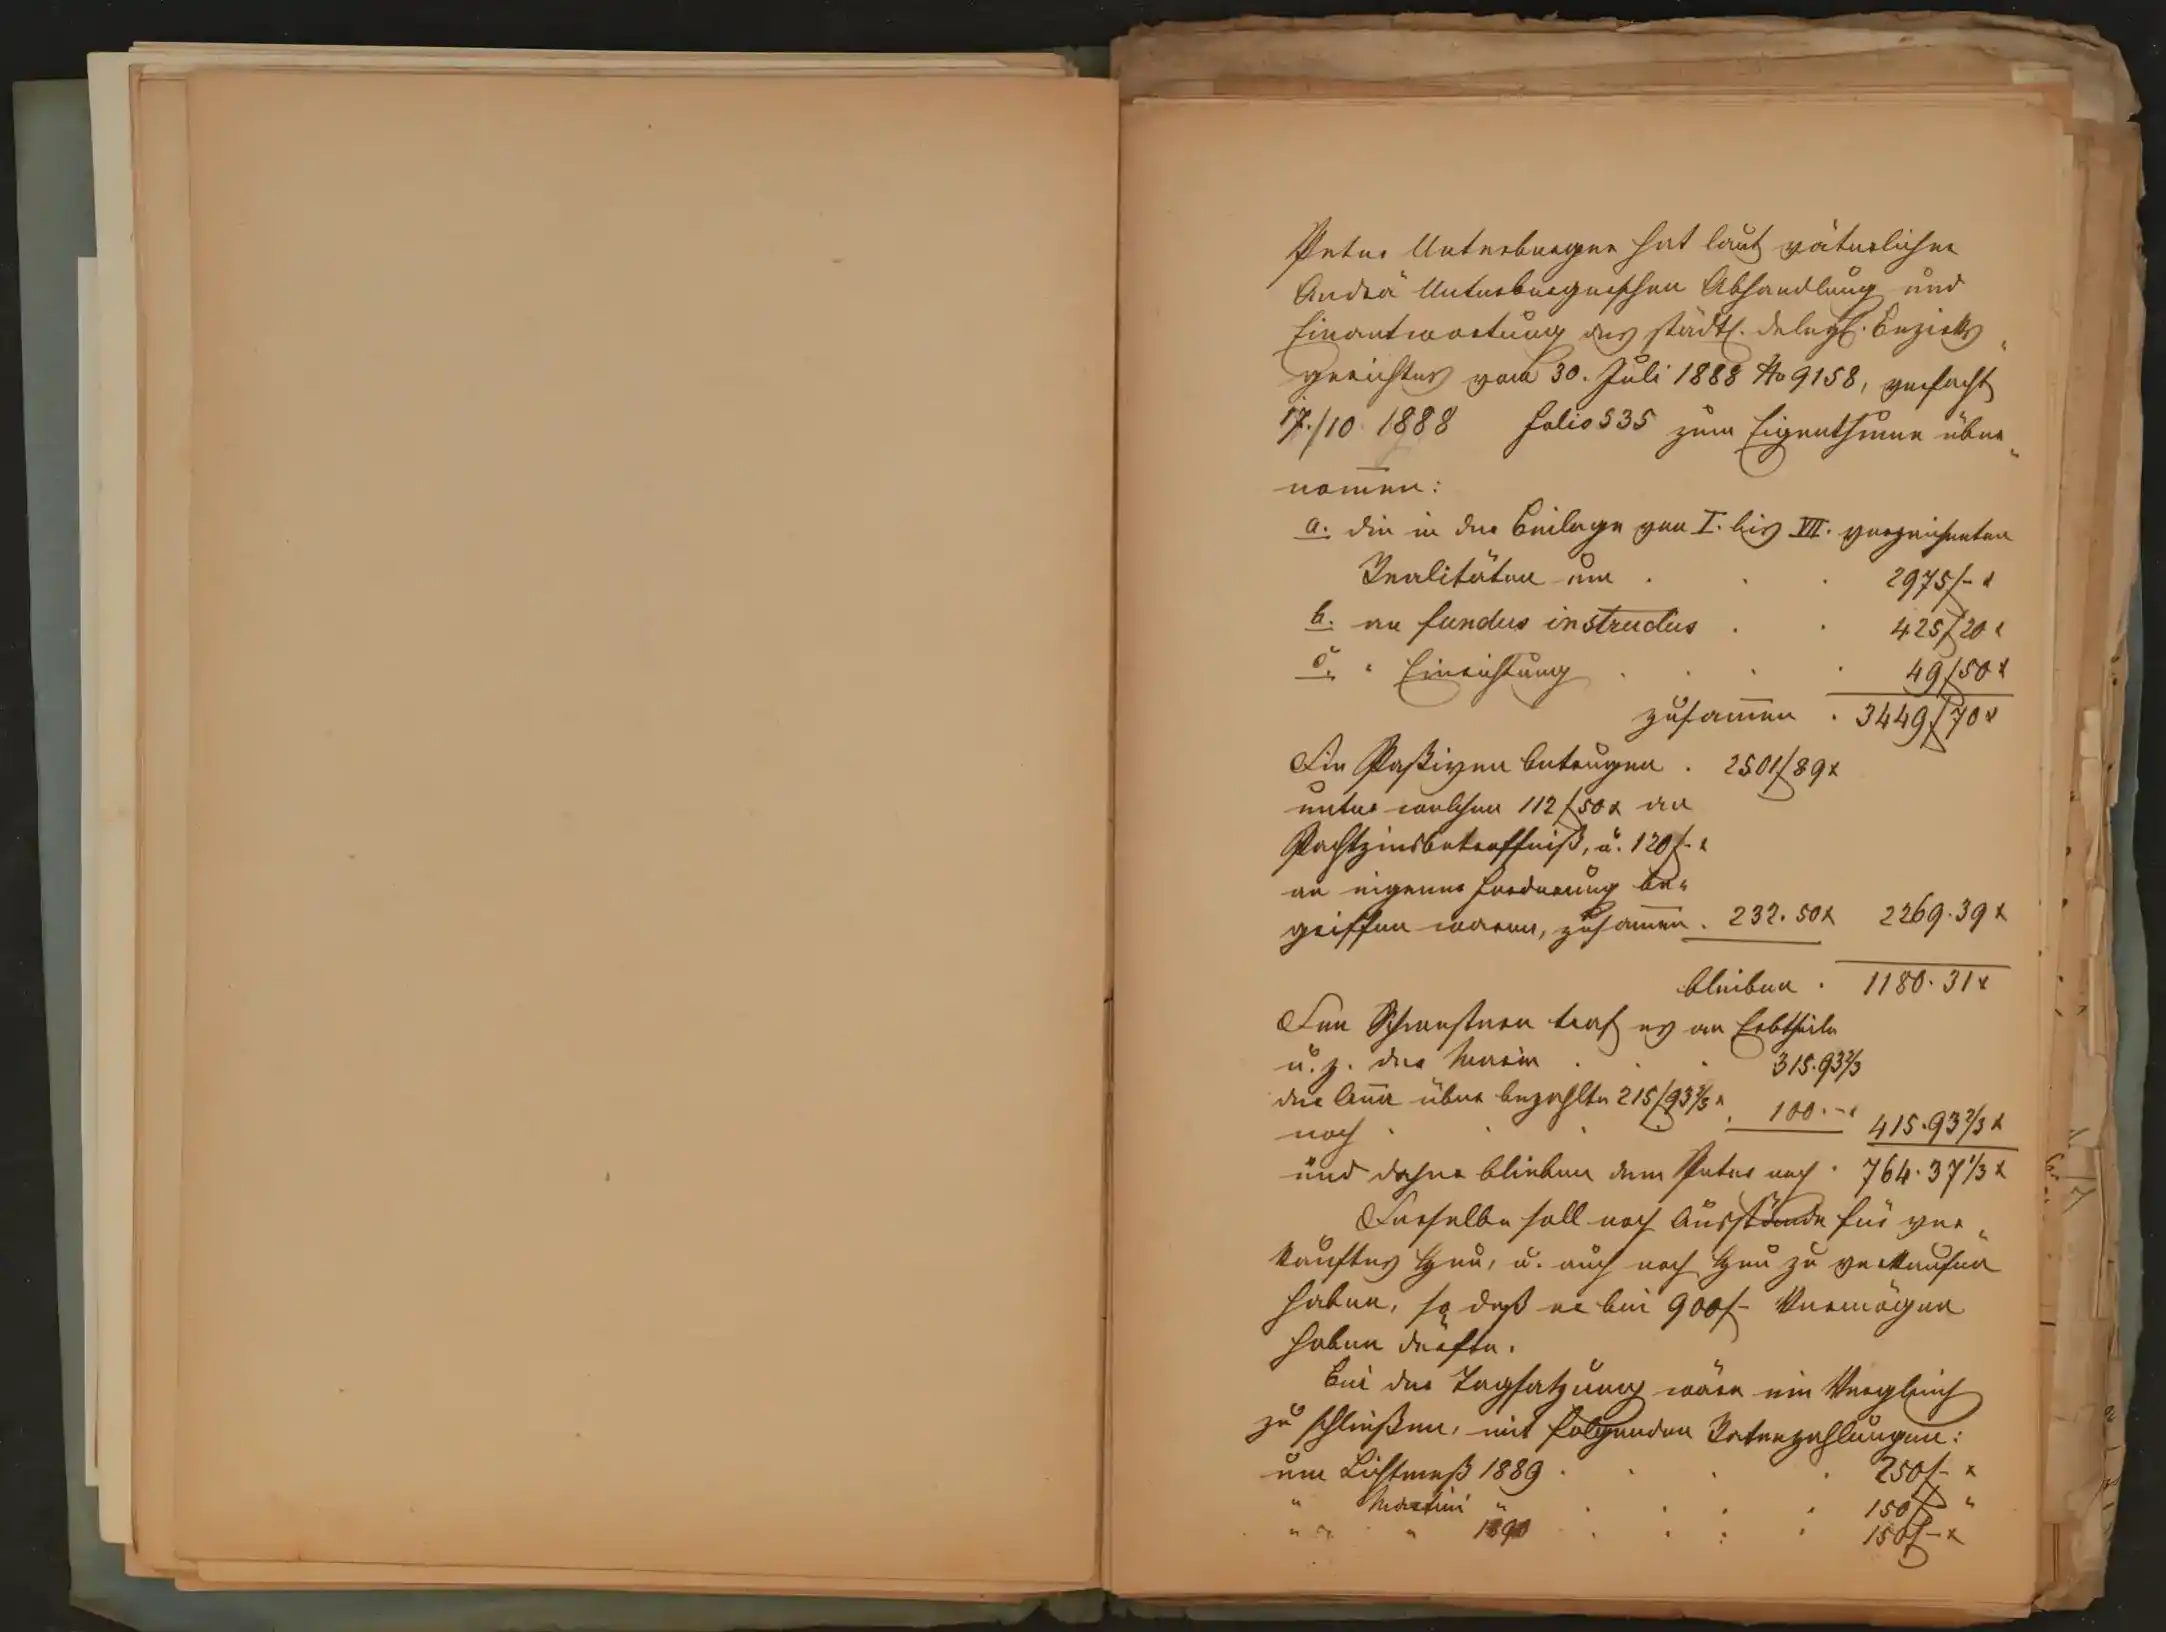 Peter Unterburger hat laut väterlicher
Andrä Unterburgerischen Abhandlung und
Einantwortung des städtl. delegl. Bezirks„
gerichtes vom 30. Juli 1888 No 9158, verfacht
17./10 1888 Folio 535 zum Eigenthume über„
nom̅en:
a. die in der Beilage von I. bis VII. verzeichneten
Realitäten um . . . 2975f - x
b. an fundus instructus . . 425f 20 x
c. " Einrichtung . . . . 49f 50 x
zusam̅en . 3449f 70 x
Die Paßiven betrugen . 2501f 89 x
unter welchen 112f 50 x an
Pachtzinsbetreffniß, u. 120f - x
an eigener Forderung be„
griffen waren, zusam̅en . 232. 50 x 2269. 39 x
bleiben . 1180. 31 x
Den Schwestern traf es an Erbtheile
u. z. der Maria . . 315. 93 2/3
der An̅a über bezahlte 215f 93 2/3 x
noch . . . . 100. - x 415. 93 2/3 x
und daher blieben dem Peter noch . 764. 37 1/3 x
Derselbe soll noch Ausstände für ver„
kauftes Heu, u. auch noch Heu zu verkaufen
haben, so daß er bei 900f - Vermögen
haben dürfte.
Bei der Tagsatzung wäre ein Vergleich
zu schließen, mit folgenden Ratenzahlungen:
um Lichtmeß 1889 . . . . 250f - x
" Martini " . . . . 150f "
" " " 1890 . . . . 150f - x